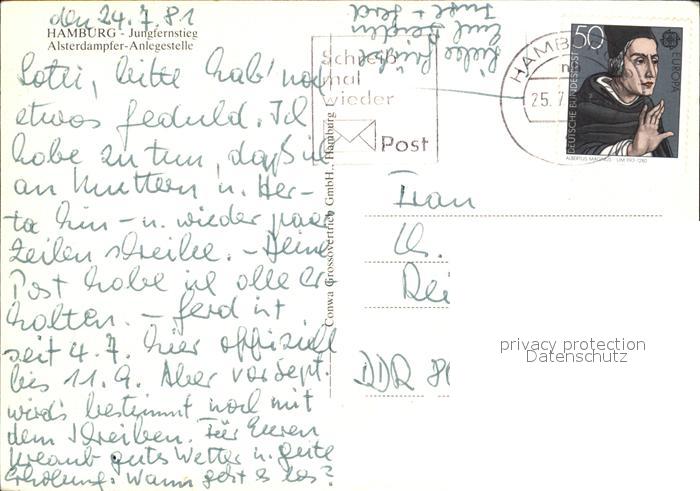 den 24.7.81
HAMBURG - Jungfernstieg
Alsterdampfer-Anlegestelle
Lotti, bitte hab' noch
etwas geduld. Ich
habe zu tun, daß ich
an Muttern u. Her-
ta hin - u. wieder paar
Zeilen schreibe. - Deine
Post habe ich alle er-
halten. - ferd ist
seit 4.7. hier offiziell
bis 11.9. Aber vor Sept.
wird's bestimmt noch mit
dem Schreiben. Für Euren
Urlaub gutes Wetter u. gute
Erholung. Wann geht es los?
Liebe Grüße
Euch Beiden
+ ferd
Conwa Grossovertrieb GmbH., Hamburg
Schreib
mal
wieder
Post
HAMB
25.7
50
DEUTSCHE BUNDESPOST
EUROPA
ALBERTUS MAGNUS · UM 1193-1280
Frau
Ch.
Rei
DDR 80
privacy protection
Datenschutz